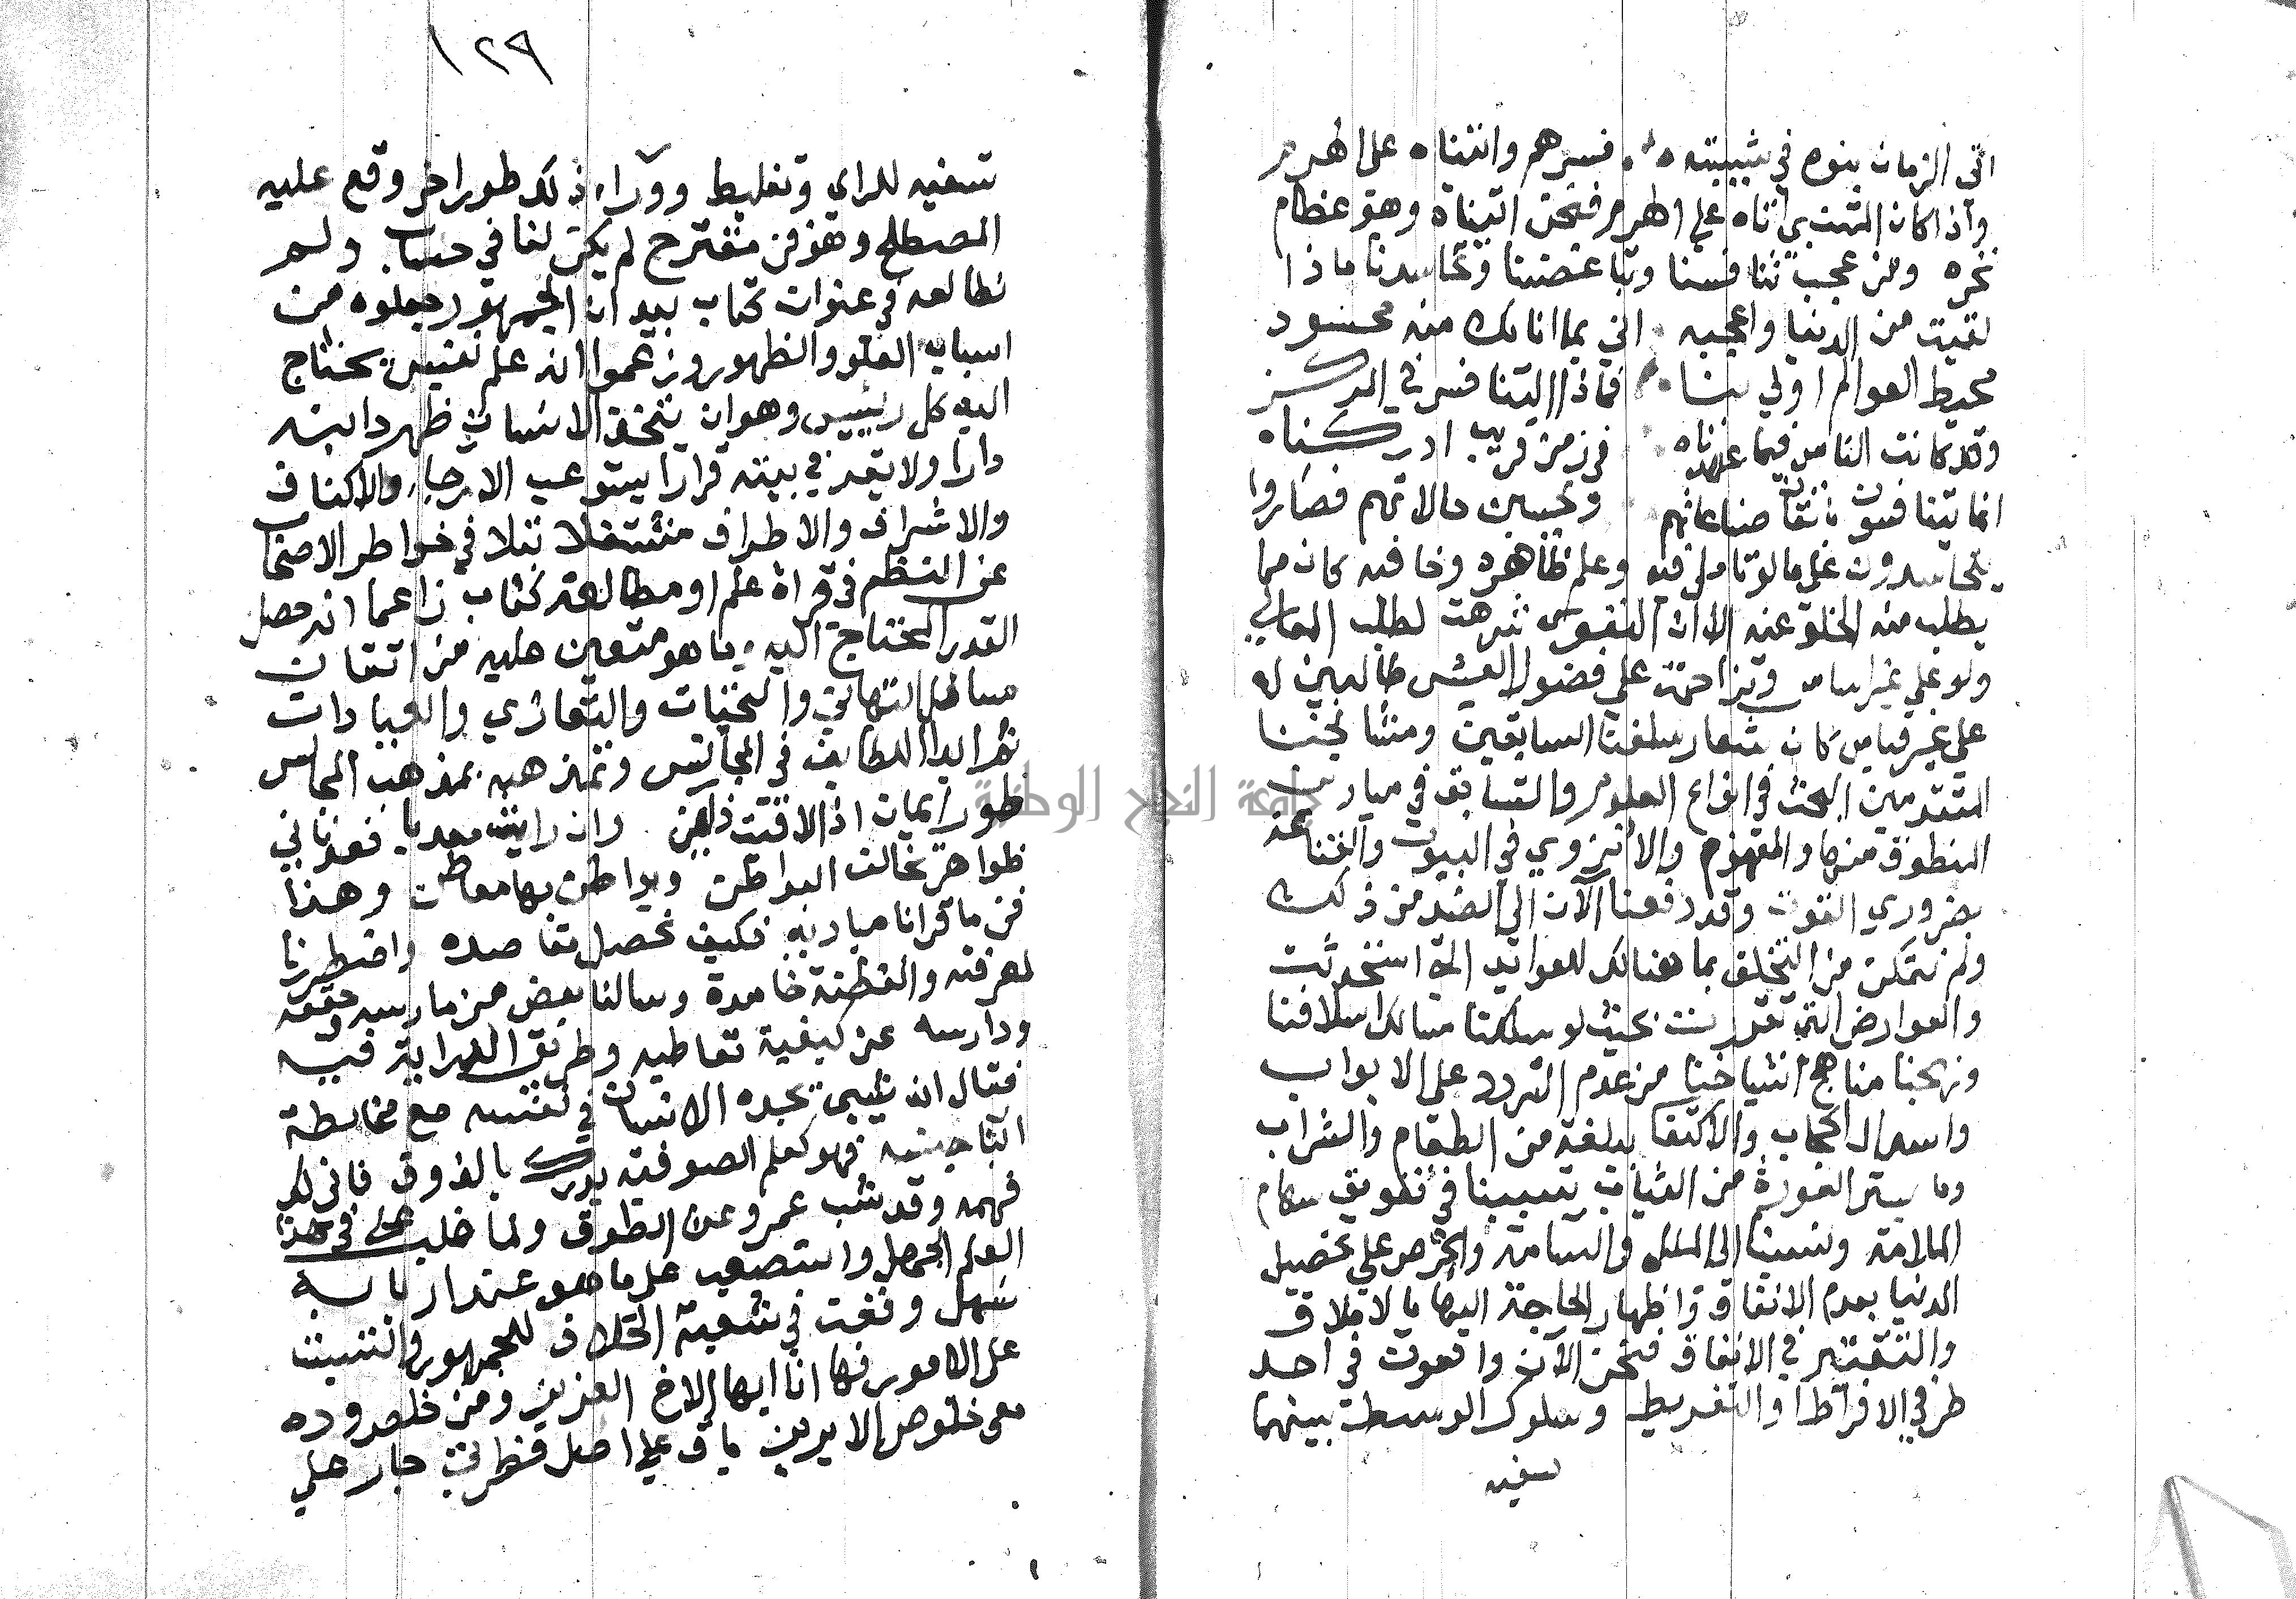 اتى الزمان بنوه في شبيبته فسرهم واتيناه على الهرم
واذا كان المتنبي اتاه على الهرم فنحن اتيناه وهو عظام
نخره ومن عجب تنافسنا وتباغضنا وتحاسدنا ماذا
لقيت من الدنيا واعجبه اني بما انا باك منه محسود
محيط العوالم اولى بنا فماذا التنافس في المركز
وقد كانت الناس فيما عهدناه في زمن قريب ادركناه
انما يتنافسون باتقان صناعاتهم وتحسين حالاتهم فصاروا
يتحاسدون على ما لو تامل فيه وعلم ظاهره وخافيه كان مما
يطلب منه الخلو عنه الا ان النفوس شرهت لطلب المعالي
ولو على غير اساس وتزاحمت على فضول العيش طالبين له
على غير قياس كان شعار سلفنا السابقين ومشايخنا
المتقدمين البحث في انواع العلوم والتسابق في ميادين
المنطوق منها والمفهوم والانزوي في البيوت والقناعة
بضروري القوت وقد دفعنا الآن الى الضد من ذلك
ولم نتمكن من التخلق بما هنالك للعوايد التي استحدثت
والعوارض التي تقررت بحيث لو سلكنا مسالك اسلافنا
ونهجنا مناهج اشياخنا من عدم التردد على الابواب
واسدال الحجاب والاكتفا ببلغة من الطعام والشراب
وما يستر العورة من الثياب تسببنا في تفويق سهام
الملامة ونسبنا الى الملل والسامة والحرص على تحصيل
الدنيا بعدم الانفاق واظهار الحاجة اليها بالاملاق
والتقتير في الانفاق فنحن الآن واقعون في احد
طرفي الافراط والتفريط وسلوك الوسط بينهما
تسفيه
١٢٩
تسفيه للراي وتغليط ووراء ذلك طور اخر وقع عليه
المصطلح وهو فن مقترح لم يكن لنا في حساب ولم
نطالعه في عنوان كتاب بيد ان الجمهور جعلوه من
اسباب العلو والظهور وزعموا انه علم نفيس يحتاج
اليه كل رئيس وهو ان يتخذ الانسان ظهر دابته
دارا ولا يقر في بيته قرارا يستوعب الارجاء والاكناف
والاشراف والاطراف متشغلا تبلا في خواطر الاصحاب
عن النظم في قراة علم او مطالعة كتاب زاعما انه حصل
القدر المحتاج اليه وما هو متعين عليه من اتقان
مسائل التهاني والتحيات والتعازي والعيادات
ثم ابدا اللطايف في المجالس وتمذهبه بمذهب المجالس
طورا يمان اذا لاقيت ذا يمن وان رايت معديا فعدناني
ظواهر تخالف البواطن وبواطن بها معاطن وهذا
فن ما قرانا مباديه فكيف نحصل مقاصده واضطررنا
لمعرفته والفطنة خامدة وسالنا بعض من مارسه وحققه
ودارسه عن كيفية تعاطيه وطريق الهداية فيه
فقال انه شيء يجده الانسان في نفسه مع مخالطة
ابنا جنسه فهو كعلم الصوفية يدرك بالذوق فانى لك
فهمه وقد شب عمرو عن الطوق ولما غلب علي في هذا
العلم الجهل واستصعب على ما هو عند اربابه
سهل وقفت في شعبة الخلاف للجمهور والتشبث
على الامور فها انا ايها الاخ العزيز ومن خلص وده
معي خلوص الابريز باق على اصل فطرتي جار على